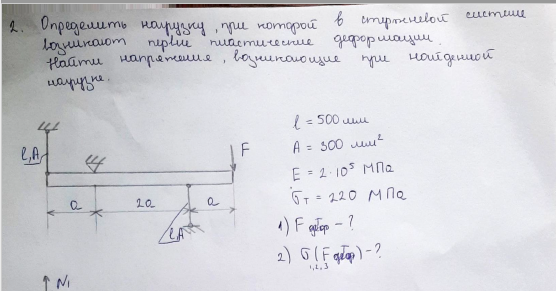 2. Определить нагрузку, при которой в стержневой системе
возникают первые пластические деформации.
Найти напряжения, возникающие при найденной
нагрузке.
l = 500 мм
A = 300 мм²
E = 2·10⁵ МПа
σт = 220 МПа
1) F деф - ?
2) σ₁,₂,₃ (F деф) - ?
l, A
F
a
2a
a
l, A
N₁